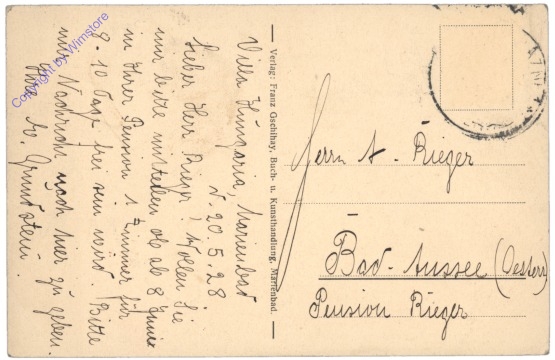 Villa Hungaria, Marienbad
d. 20. 5. 28
Lieber Herr Rieger! Wollen Sie
mir bitte mitteilen ob ab 8 Juni
in Ihrer Pension 1 Zimmer für
8-10 Tage frei sein wird. Bitte
mir Nachricht nach hier zu geben.
Grundstein
Verlag: Franz Gschihay, Buch- u. Kunsthandlung, Marienbad.
Herrn A. Rieger
Bad-Aussee (Oesterr)
Pension Rieger
Copyright by Wimstore